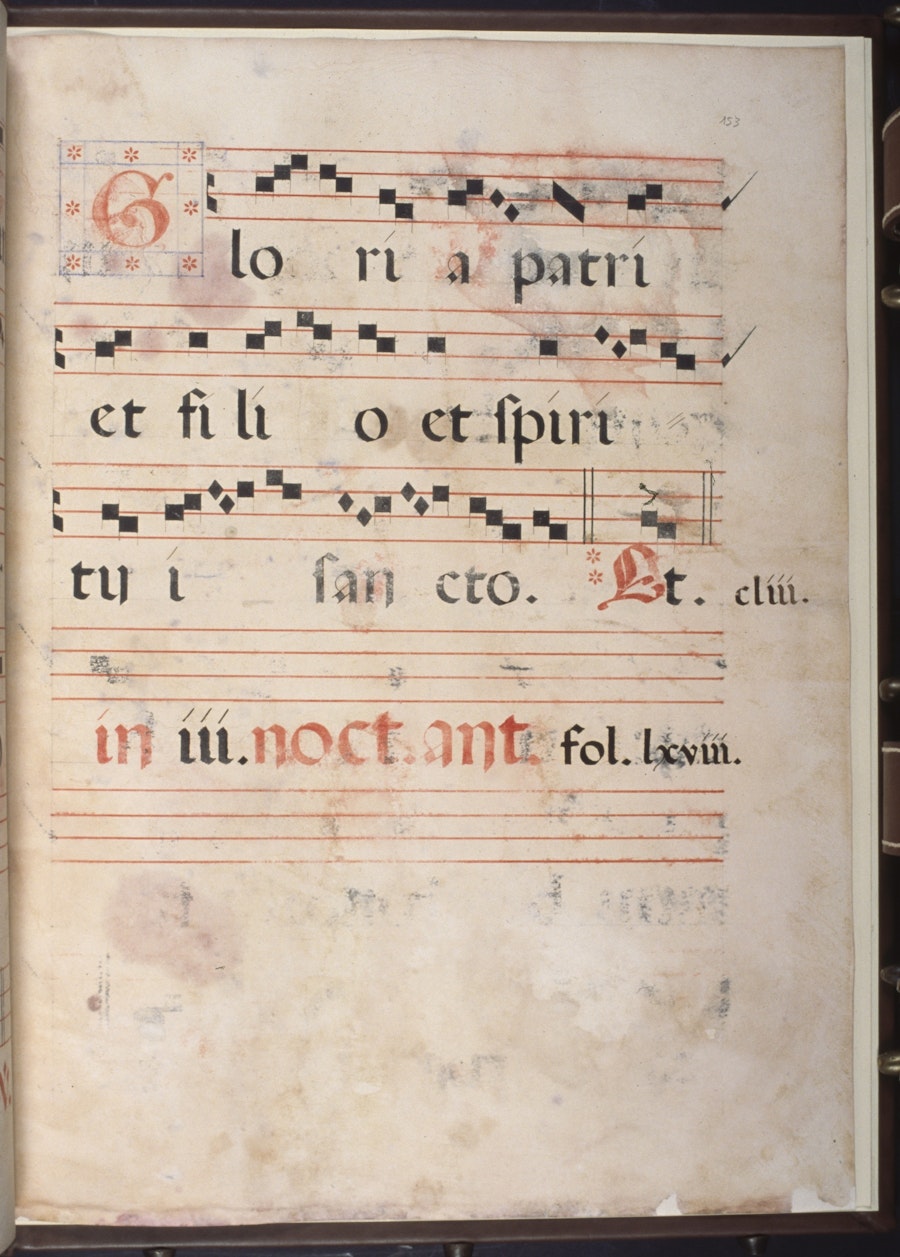 153
Glo ri a patri
et fi li o et ſpiri
tu i ſan cto. Et. cliii.
in iii. noct. ant. fol. lxviii.